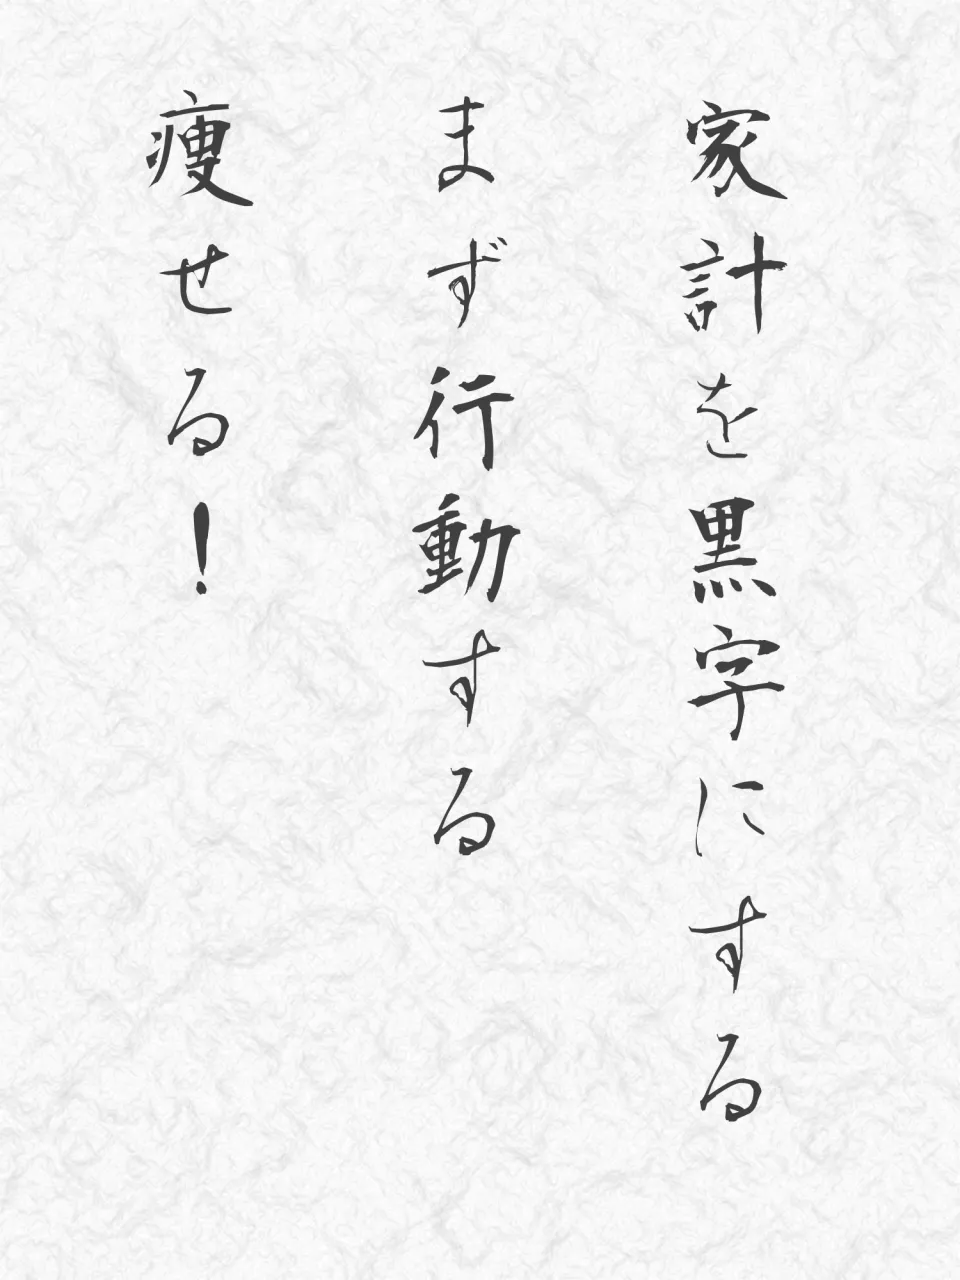 家計を黒字にする
まず行動する
痩せる!